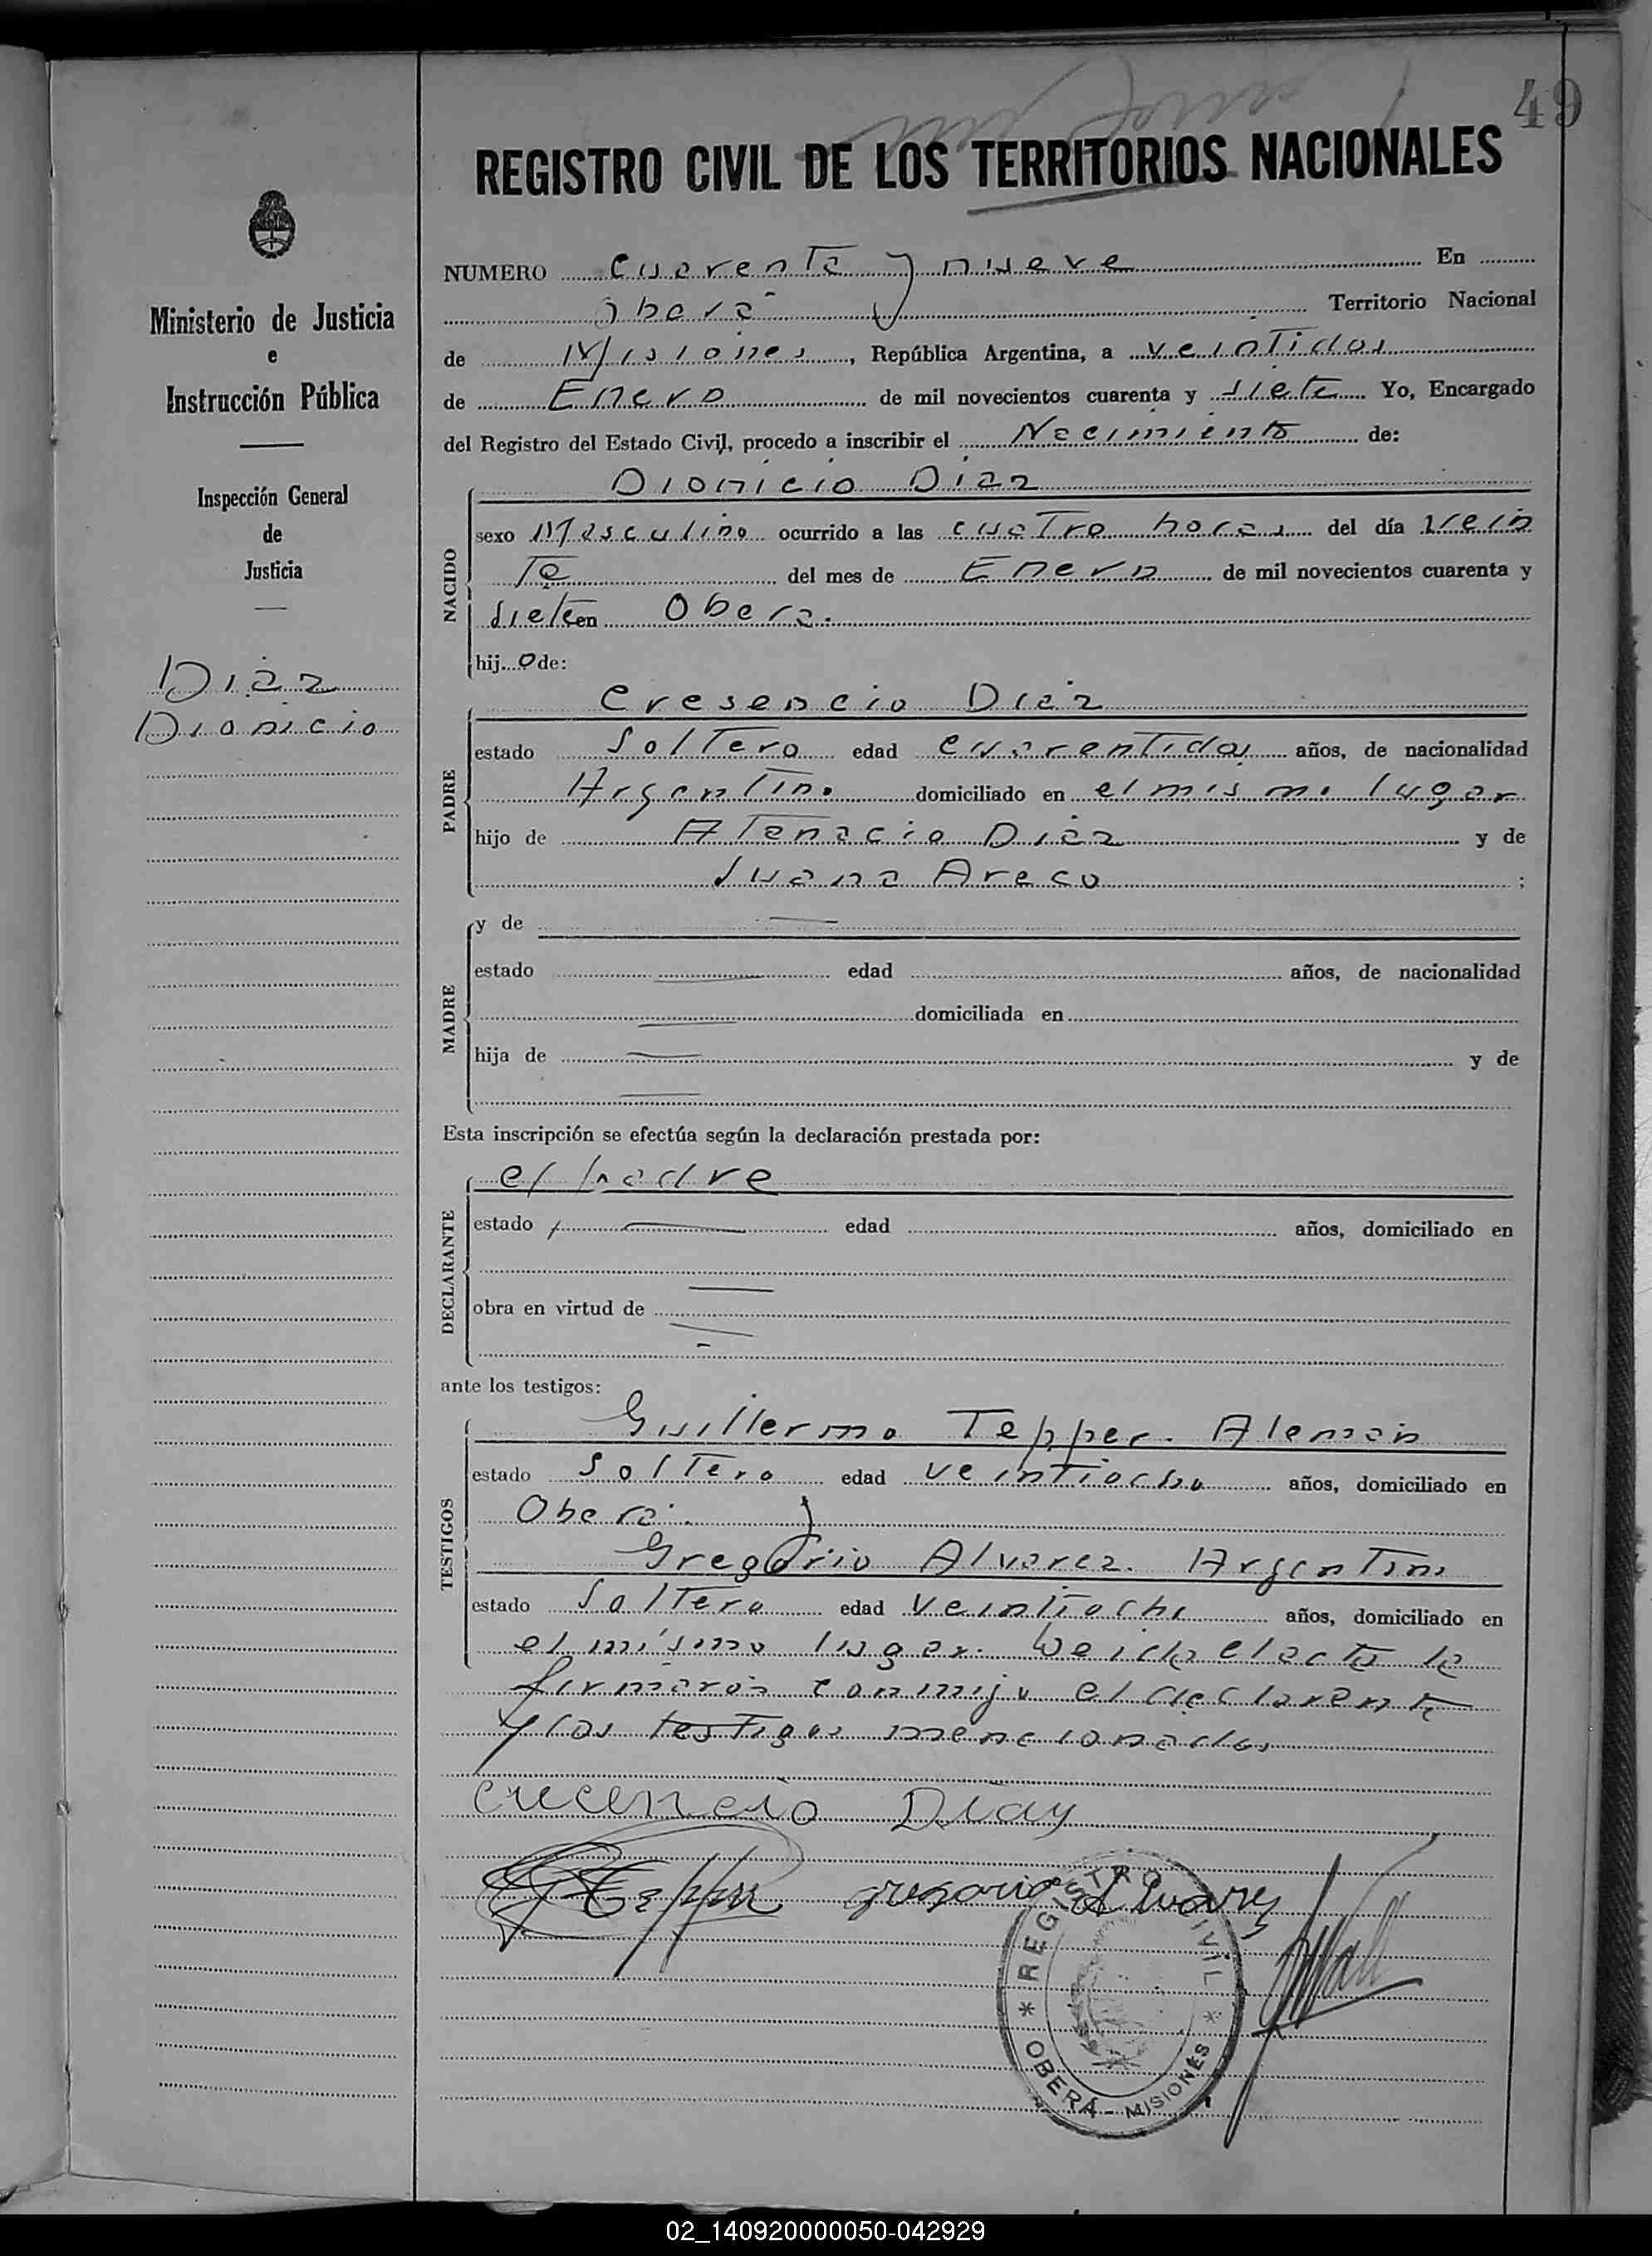 49
REGISTRO CIVIL DE LOS TERRITORIOS NACIONALES
Ministerio de Justicia
e
Instrucción Pública
Inspección General
de
Justicia
Diaz
Dionicio
NUMERO cuarenta y nueve En
Oberá Territorio Nacional
de Misiones, República Argentina, a veintidos
de Enero de mil novecientos cuarenta y siete Yo, Encargado
del Registro del Estado Civil, procedo a inscribir el Nacimiento de:
NACIDO
Dionicio Diaz
sexo Masculino ocurrido a las cuatro horas del día vein
te del mes de Enero de mil novecientos cuarenta y
siete en Oberá.
hijo de:
PADRE
Cresencio Diaz
estado Soltero edad cuarentidos años, de nacionalidad
Argentino domiciliado en el mismo lugar
hijo de Atanacio Diaz y de
Juana Areco ;
MADRE
y de
estado edad años, de nacionalidad
domiciliada en
hija de y de
Esta inscripción se efectúa según la declaración prestada por:
DECLARANTE
el padre
estado edad años, domiciliado en
obra en virtud de
ante los testigos:
TESTIGOS
Guillermo Tepper. Alemán
estado Soltero edad veintiocho años, domiciliado en
Oberá.
Gregorio Alvarez. Argentino
estado Soltero edad veintiocho años, domiciliado en
el mismo lugar. Leida el acta la
firmaron conmigo el declarante
y los testigos mencionados
Crecencio Diaz
Tepper gregorio Alvarez
REGISTRO CIVIL
OBERÁ - MISIONES
02_140920000050-042929